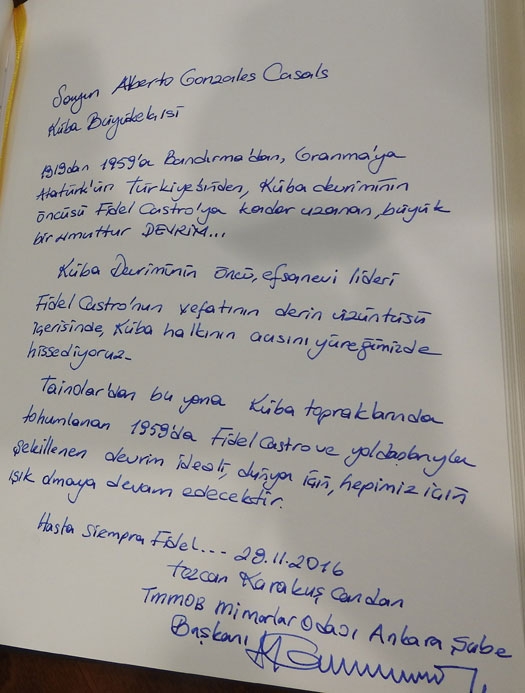 Sayın Alberto Gonzales Casals
Küba Büyükelçisi
1919dan 1959'a Bandırma'dan, Granma'ya
Atatürk'ün Türkiyesinden, Küba devriminin
öncüsü Fidel Castro'ya kadar uzanan, büyük
bir umuttur DEVRİM...
Küba Devriminin öncü, efsanevi lideri
Fidel Castro'nun vefatının derin üzüntüsü
içerisinde, Küba halkının acısını yüreğimizde
hissediyoruz.
Tainolar'dan bu yana Küba topraklarında
tohumlanan 1959'da Fidel Castro ve yoldaşlarıyla
şekillenen devrim ideali, dünya için, hepimiz için
ışık olmaya devam edecektir.
Hasta siempra Fidel... 28.11.2016
Tezcan Karakuş Candan
TMMOB Mimarlar Odası Ankara Şube
Başkanı